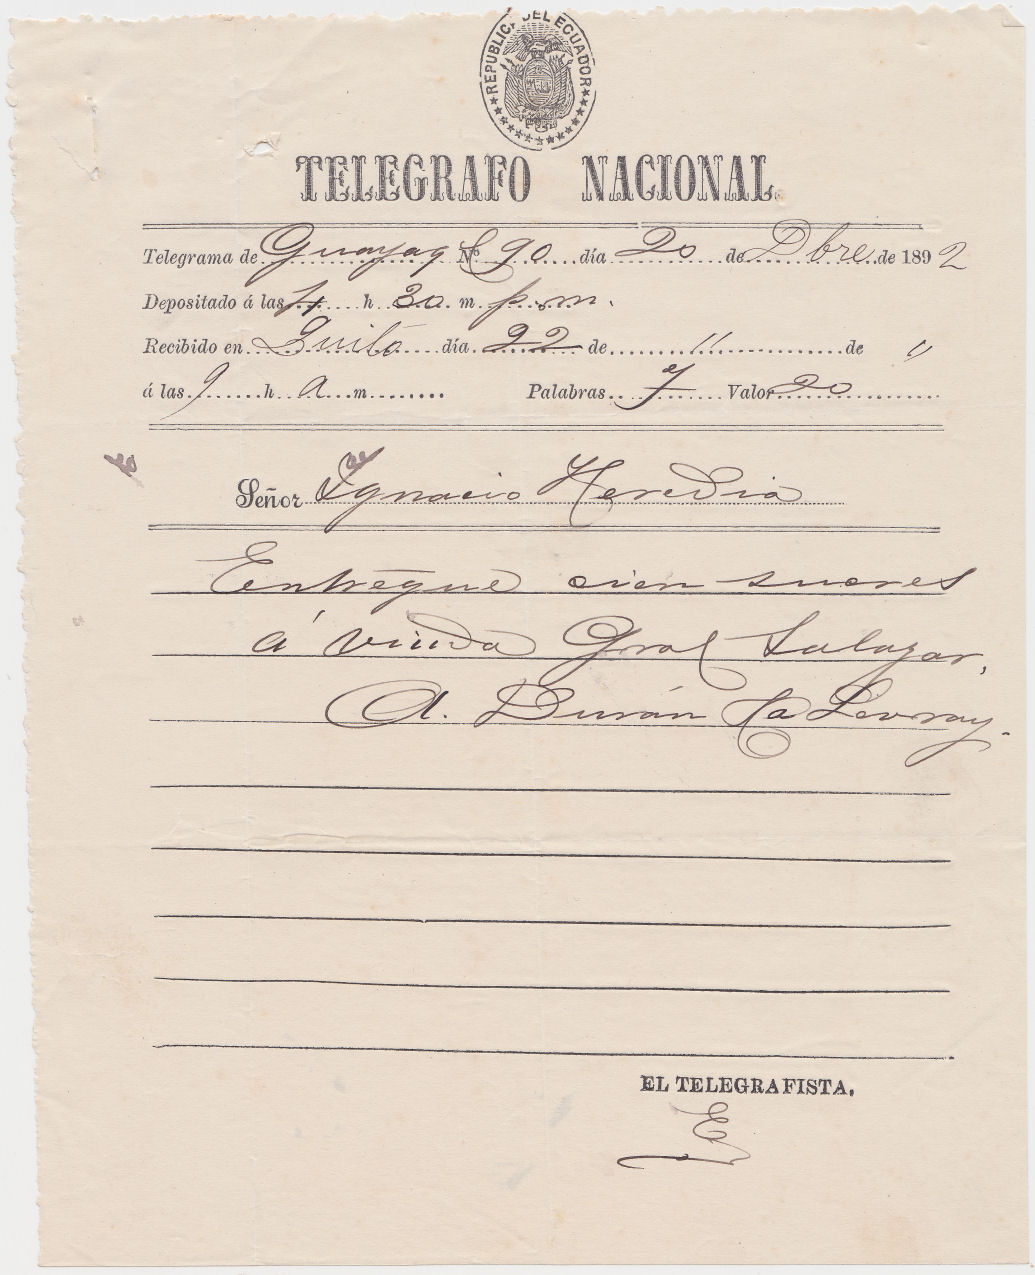 REPUBLICA DEL ECUADOR
TELEGRAFO NACIONAL
Telegrama de Guayaql Nº 90 día 20 de Dbre de 1892
Depositado á las 4 h 30 m p.m.
Recibido en Quito día 22 de " de "
á las 9 h a m Palabras 7 Valor 20
Señor Ignacio Heredia
Entregue cien sucres
á viuda Gral Salazar,
A. Durán Ca Levray.
EL TELEGRAFISTA.
E